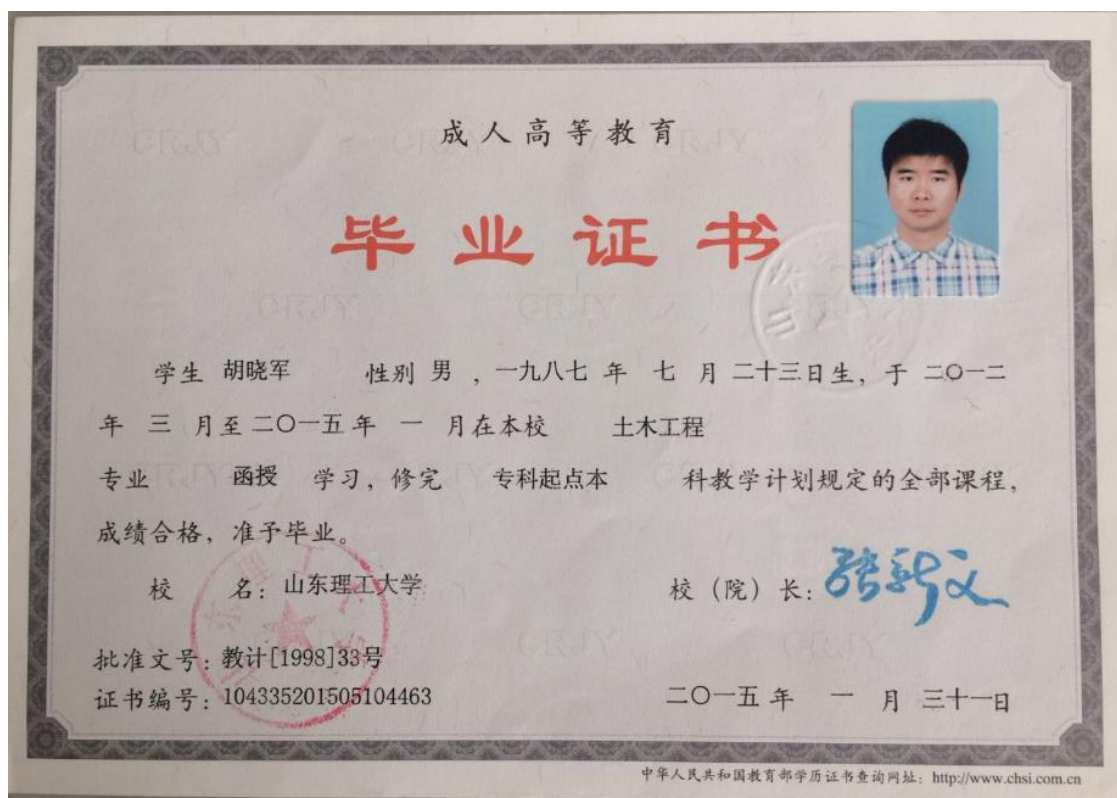 成人高等教育
毕业证书
学生 胡晓军 性别 男 , 一九八七 年 七 月 二十三日生, 于 二〇一二
年 三 月至 二〇一五 年 一 月在本校 土木工程
专业 函授 学习, 修完 专科起点本 科教学计划规定的全部课程,
成绩合格, 准予毕业。
校 名: 山东理工大学 校 (院) 长: 张新义
批准文号: 教计[1998]33号
证书编号: 104335201505104463 二〇一五 年 一 月 三十一日
中华人民共和国教育部学历证书查询网址: http://www.chsi.com.cn